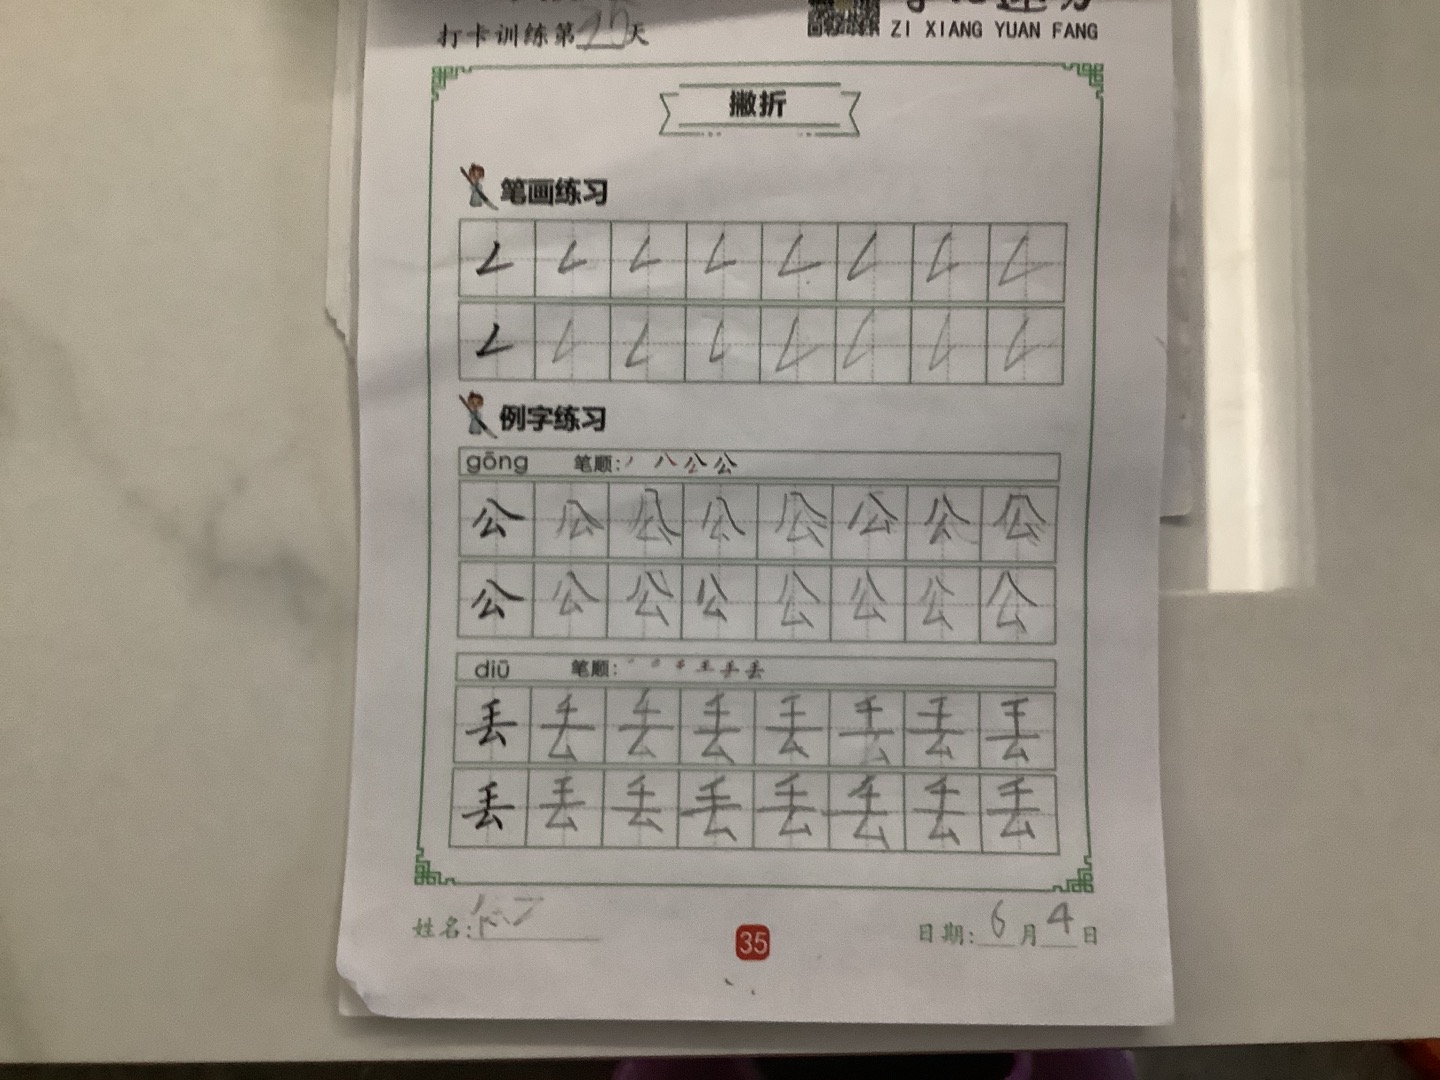 打卡训练第25天
ZI XIANG YUAN FANG
撇折
笔画练习
例字练习
gōng 笔顺: 丿 八 公 公
公 公 公 公 公 公 公 公
公 公 公 公 公 公 公 公
diū 笔顺:
丢 丢 丢 丢 丢 丢 丢 丢
丢 丢 丢 丢 丢 丢 丢 丢
姓名:
35
日期: 6 月 4 日